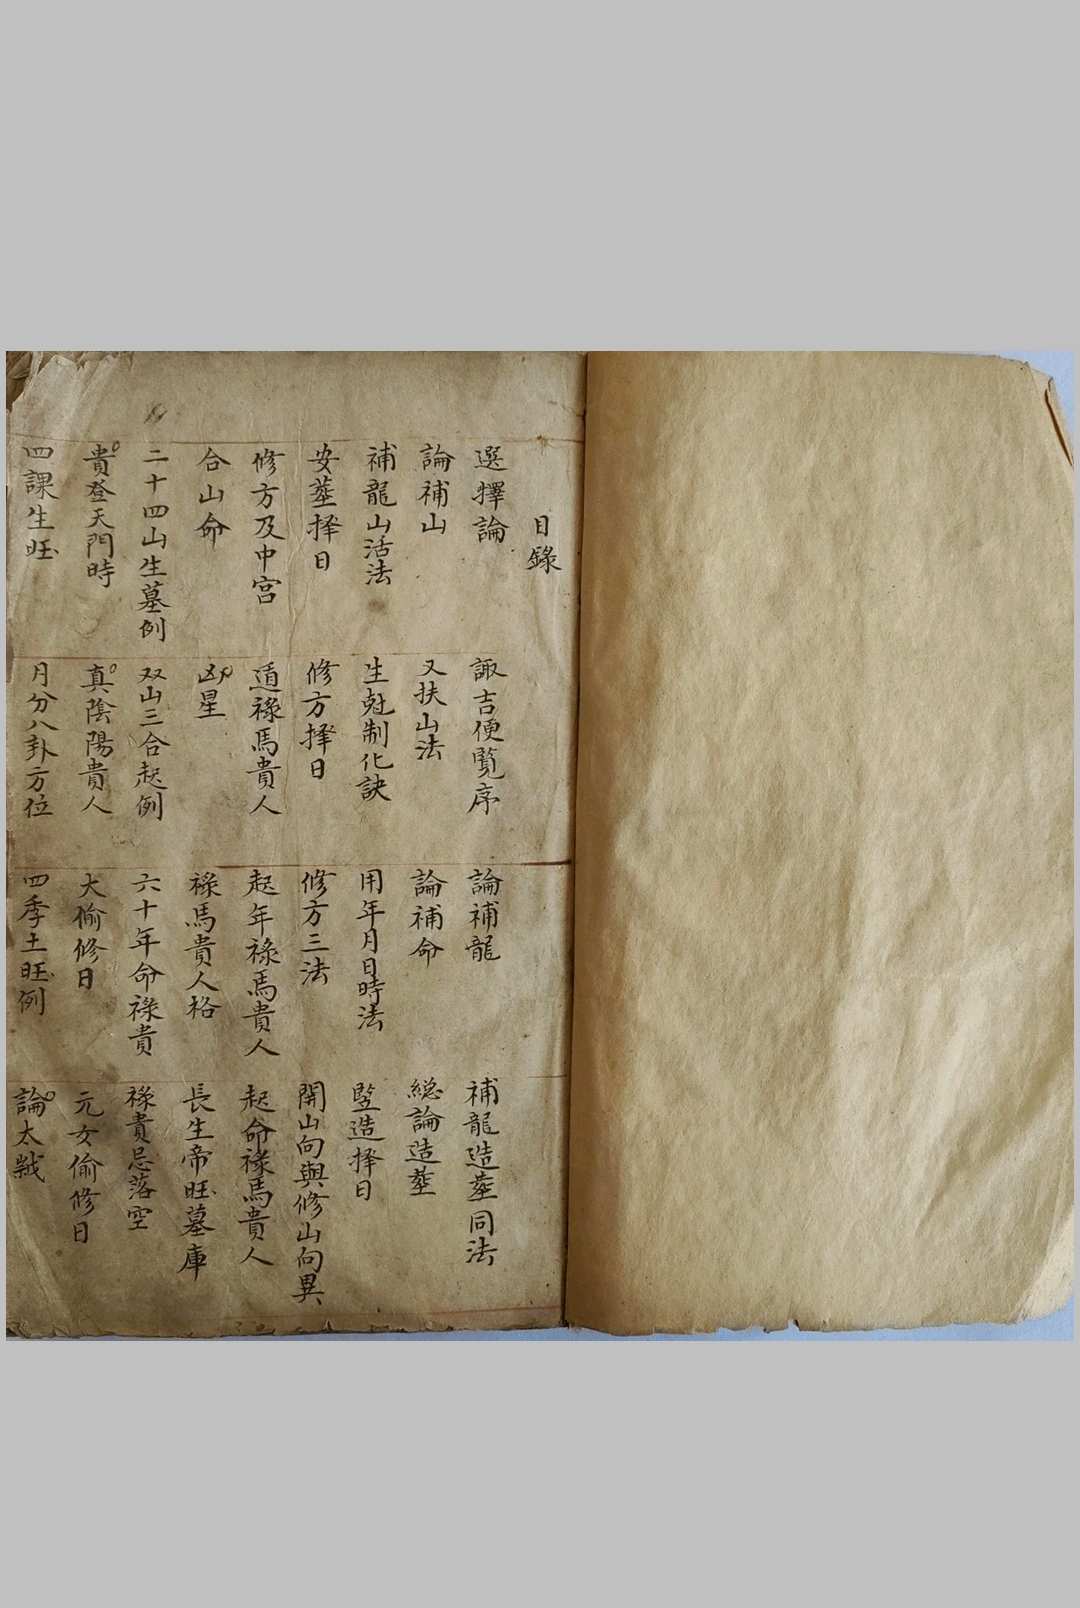 目錄
選擇論 諏吉便覧序 論補龍 補龍造塟同法
論補山 又扶山法 論補命 総論造塟
補龍山活法 生尅制化訣 用年月日時法 竪造择日
安塟择日 修方择日 修方三法 開山向與修山向異
修方及中宮 遁祿馬貴人 起年祿馬貴人 起命祿馬貴人
合山命 凶星 祿馬貴人格 長生帝旺墓庫
二十四山生墓例 双山三合起例 六十年命祿貴 祿貴忌落空
貴登天門時 真陰陽貴人 大偷修日 元女偷修日
四課生旺 月分八卦方位 四季土旺例 論太歲